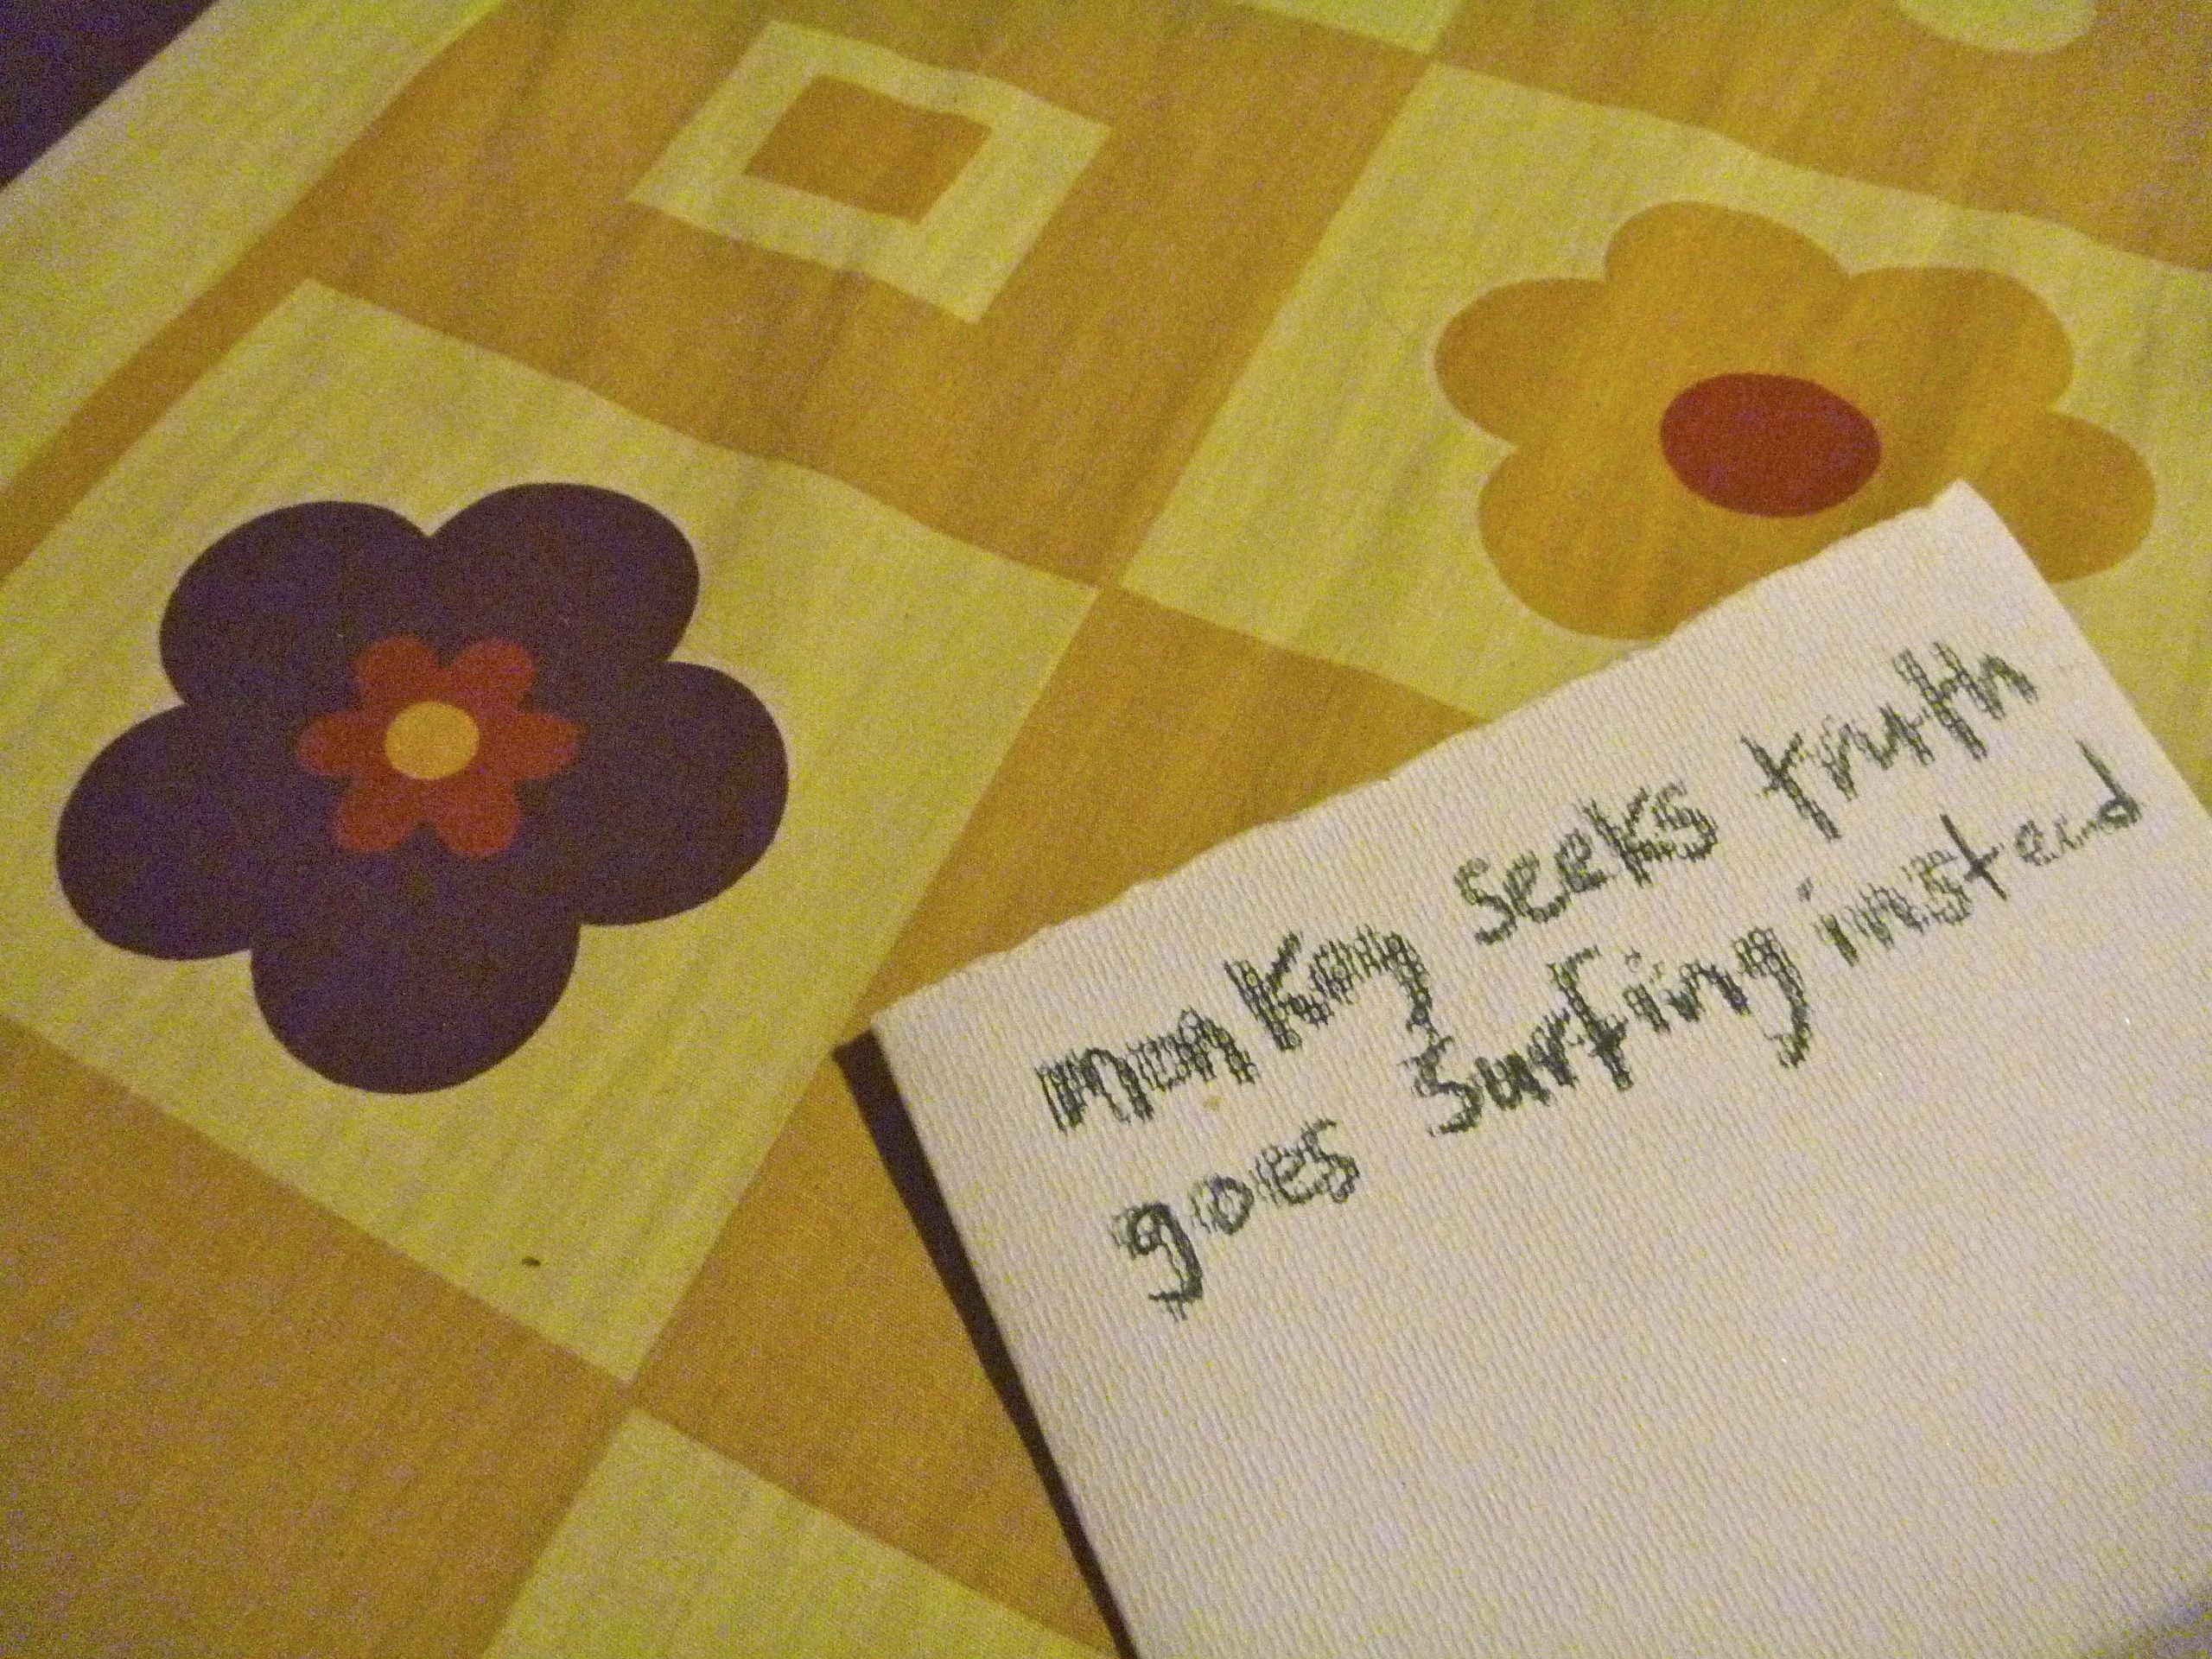 monkey seeks truth
goes surfing instead